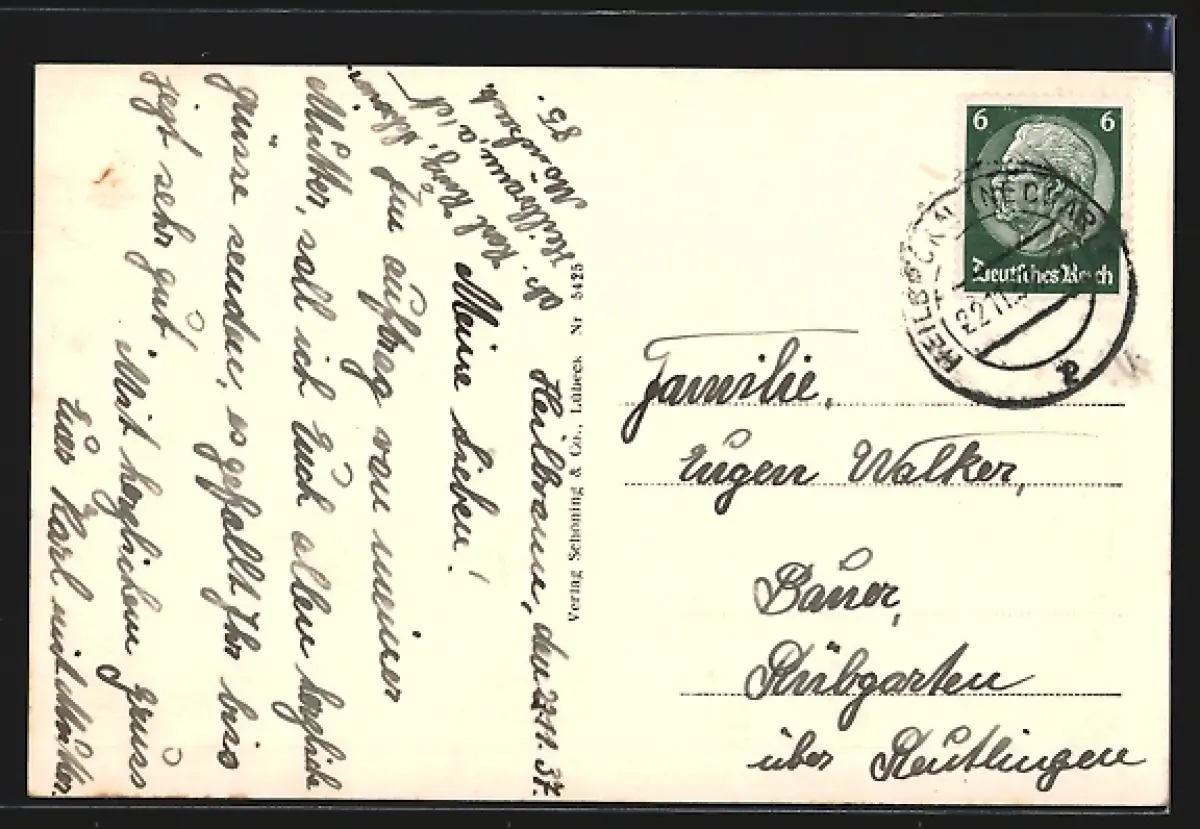 Heilbronn, den 22.11.37.
Meine Lieben!
Im auftrag von meiner
Mutter, soll ich Euch allen herzliche
grüsse senden, es gefällt Ihr bis
jezt sehr gut. Mit herzlichem gruss
Euer Karl mit Mutter.
Karl
Heilbronn, a/N
85.
Verlag Schöning & Co., Lübeck Nr 5425
6 6
Deutsches Reich
HEILBRONN (NECKAR)
22.11.
Familie,
Eugen Walker,
Bauer,
Rübgarten
über Reutlingen